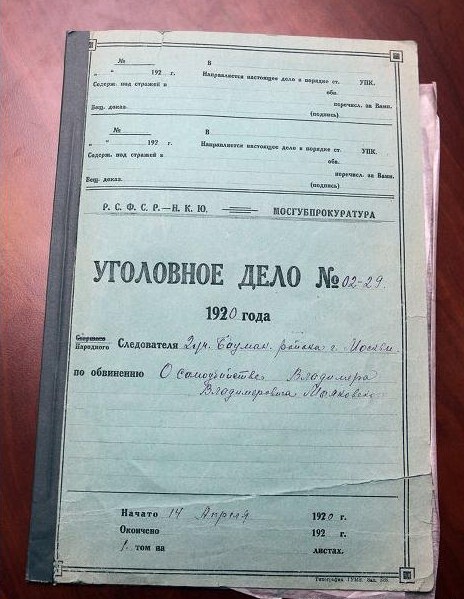 № ______ В
„ “ 192 г. Направляется настоящее дело в порядке ст. УПК.
Содерж. под стражей в обв.
перечисл. за Вами.
Вещ. доказ. (подпись)
№ ______ В
„ “ 192 г. Направляется настоящее дело в порядке ст. УПК.
Содерж. под стражей в обв.
перечисл. за Вами.
Вещ. доказ. (подпись)
Р. С. Ф. С. Р.—Н. К. Ю. МОСГУБПРОКУРАТУРА
УГОЛОВНОЕ ДЕЛО № 02-29.
1920 года
Старшего
Народного Следователя 2 уч. Бауман. района г. Москвы
по обвинению О самоубийстве Владимира
Владимировича Маяковско
Начато 14 Апреля 1920 г.
Окончено 192 г.
1. том на листах.
Типография ГУМЗ. Зак.